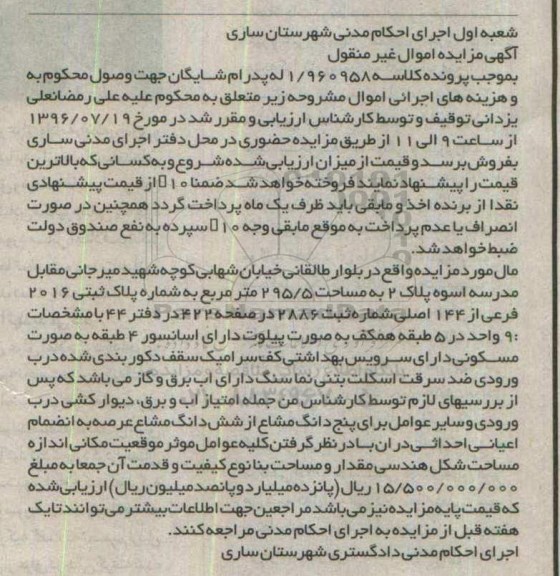 شعبه اول اجرای احکام مدنی شهرستان ساری
آگهی مزایده اموال غیر منقول
بموجب پرونده کلاسه ۱/۹۶۰۹۵۸ له پدرام شایگان جهت وصول محکوم به
و هزینه های اجرائی اموال مشروحه زیر متعلق به محکوم علیه علی رمضانعلی
یزدانی توقیف و توسط کارشناس ارزیابی و مقرر شد در مورخ ۱۳۹۶/۰۷/۱۹
از ساعت ۹ الی ۱۱ از طریق مزایده حضوری در محل دفتر اجرای مدنی ساری
بفروش برسد و قیمت از میزان ارزیابی شده شروع و به کسانی که بالاترین
قیمت را پیشنهاد نمایند فروخته خواهد شد ضمنا ۱۰ از قیمت پیشنهادی
نقدا از برنده اخذ و مابقی باید ظرف یک ماه پرداخت گردد همچنین در صورت
انصراف یا عدم پرداخت به موقع مابقی وجه ۱۰ سپرده به نفع صندوق دولت
ضبط خواهد شد.
مال مورد مزایده واقع در بلوار طالقانی خیابان شهابی کوچه شهید میرجانی مقابل
مدرسه اسوه پلاک ۲ به مساحت ۲۹۵/۵ متر مربع به شماره پلاک ثبتی ۲۰۱۶
فرعی از ۱۴۴ اصلی شماره ثبت ۲۸۸۶ در صفحه ۴۲۲ در دفتر ۴۴ با مشخصات
:۹ واحد در ۵ طبقه همکف به صورت پیلوت دارای اسانسور ۴ طبقه به صورت
مسکونی دارای سرویس بهداشتی کف سرامیک سقف دکور بندی شده درب
ورودی ضد سرقت اسکلت بتنی نما سنگ دارای آب برق و گاز می باشد که پس
از بررسیهای لازم توسط کارشناس من جمله امتیاز آب و برق، دیوار کشی درب
ورودی و سایر عوامل برای پنج دانگ مشاع از شش دانگ مشاع عرصه به انضمام
اعیانی احداثی در ان با در نظر گرفتن کلیه عوامل موثر موقعیت مکانی اندازه
مساحت شکل هندسی مقدار و مساحت بنا نوع کیفیت و قدمت آن جمعا به مبلغ
۱۵/۵۰۰/۰۰۰/۰۰۰ ریال (پانزده میلیارد و پانصد میلیون ریال) ارزیابی شده
که قیمت پایه مزایده نیز می باشد مراجعین جهت اطلاعات بیشتر می توانند تا یک
هفته قبل از مزایده به اجرای احکام مدنی مراجعه کنند.
اجرای احکام مدنی دادگستری شهرستان ساری